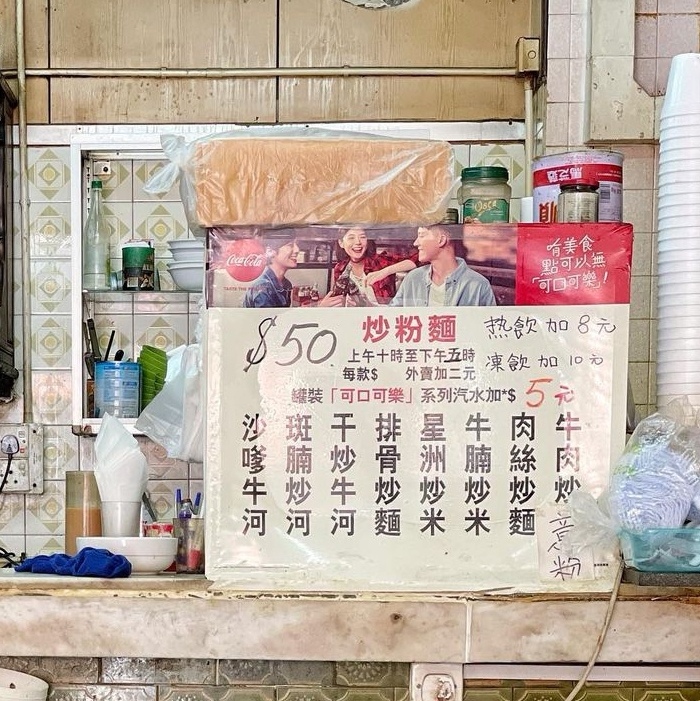 Coca-Cola
TASTE THE FEELING
有美食
點可以無
「可口可樂」!
$50
炒粉麵
热飲加8元
上午十時至下午五時
凍飲加10元
每款$ 外賣加二元
罐裝「可口可樂」系列汽水加*$5元
牛肉炒意粉
肉絲炒麵
牛腩炒米
星洲炒米
排骨炒麵
干炒牛河
斑腩炒河
沙嗲牛河